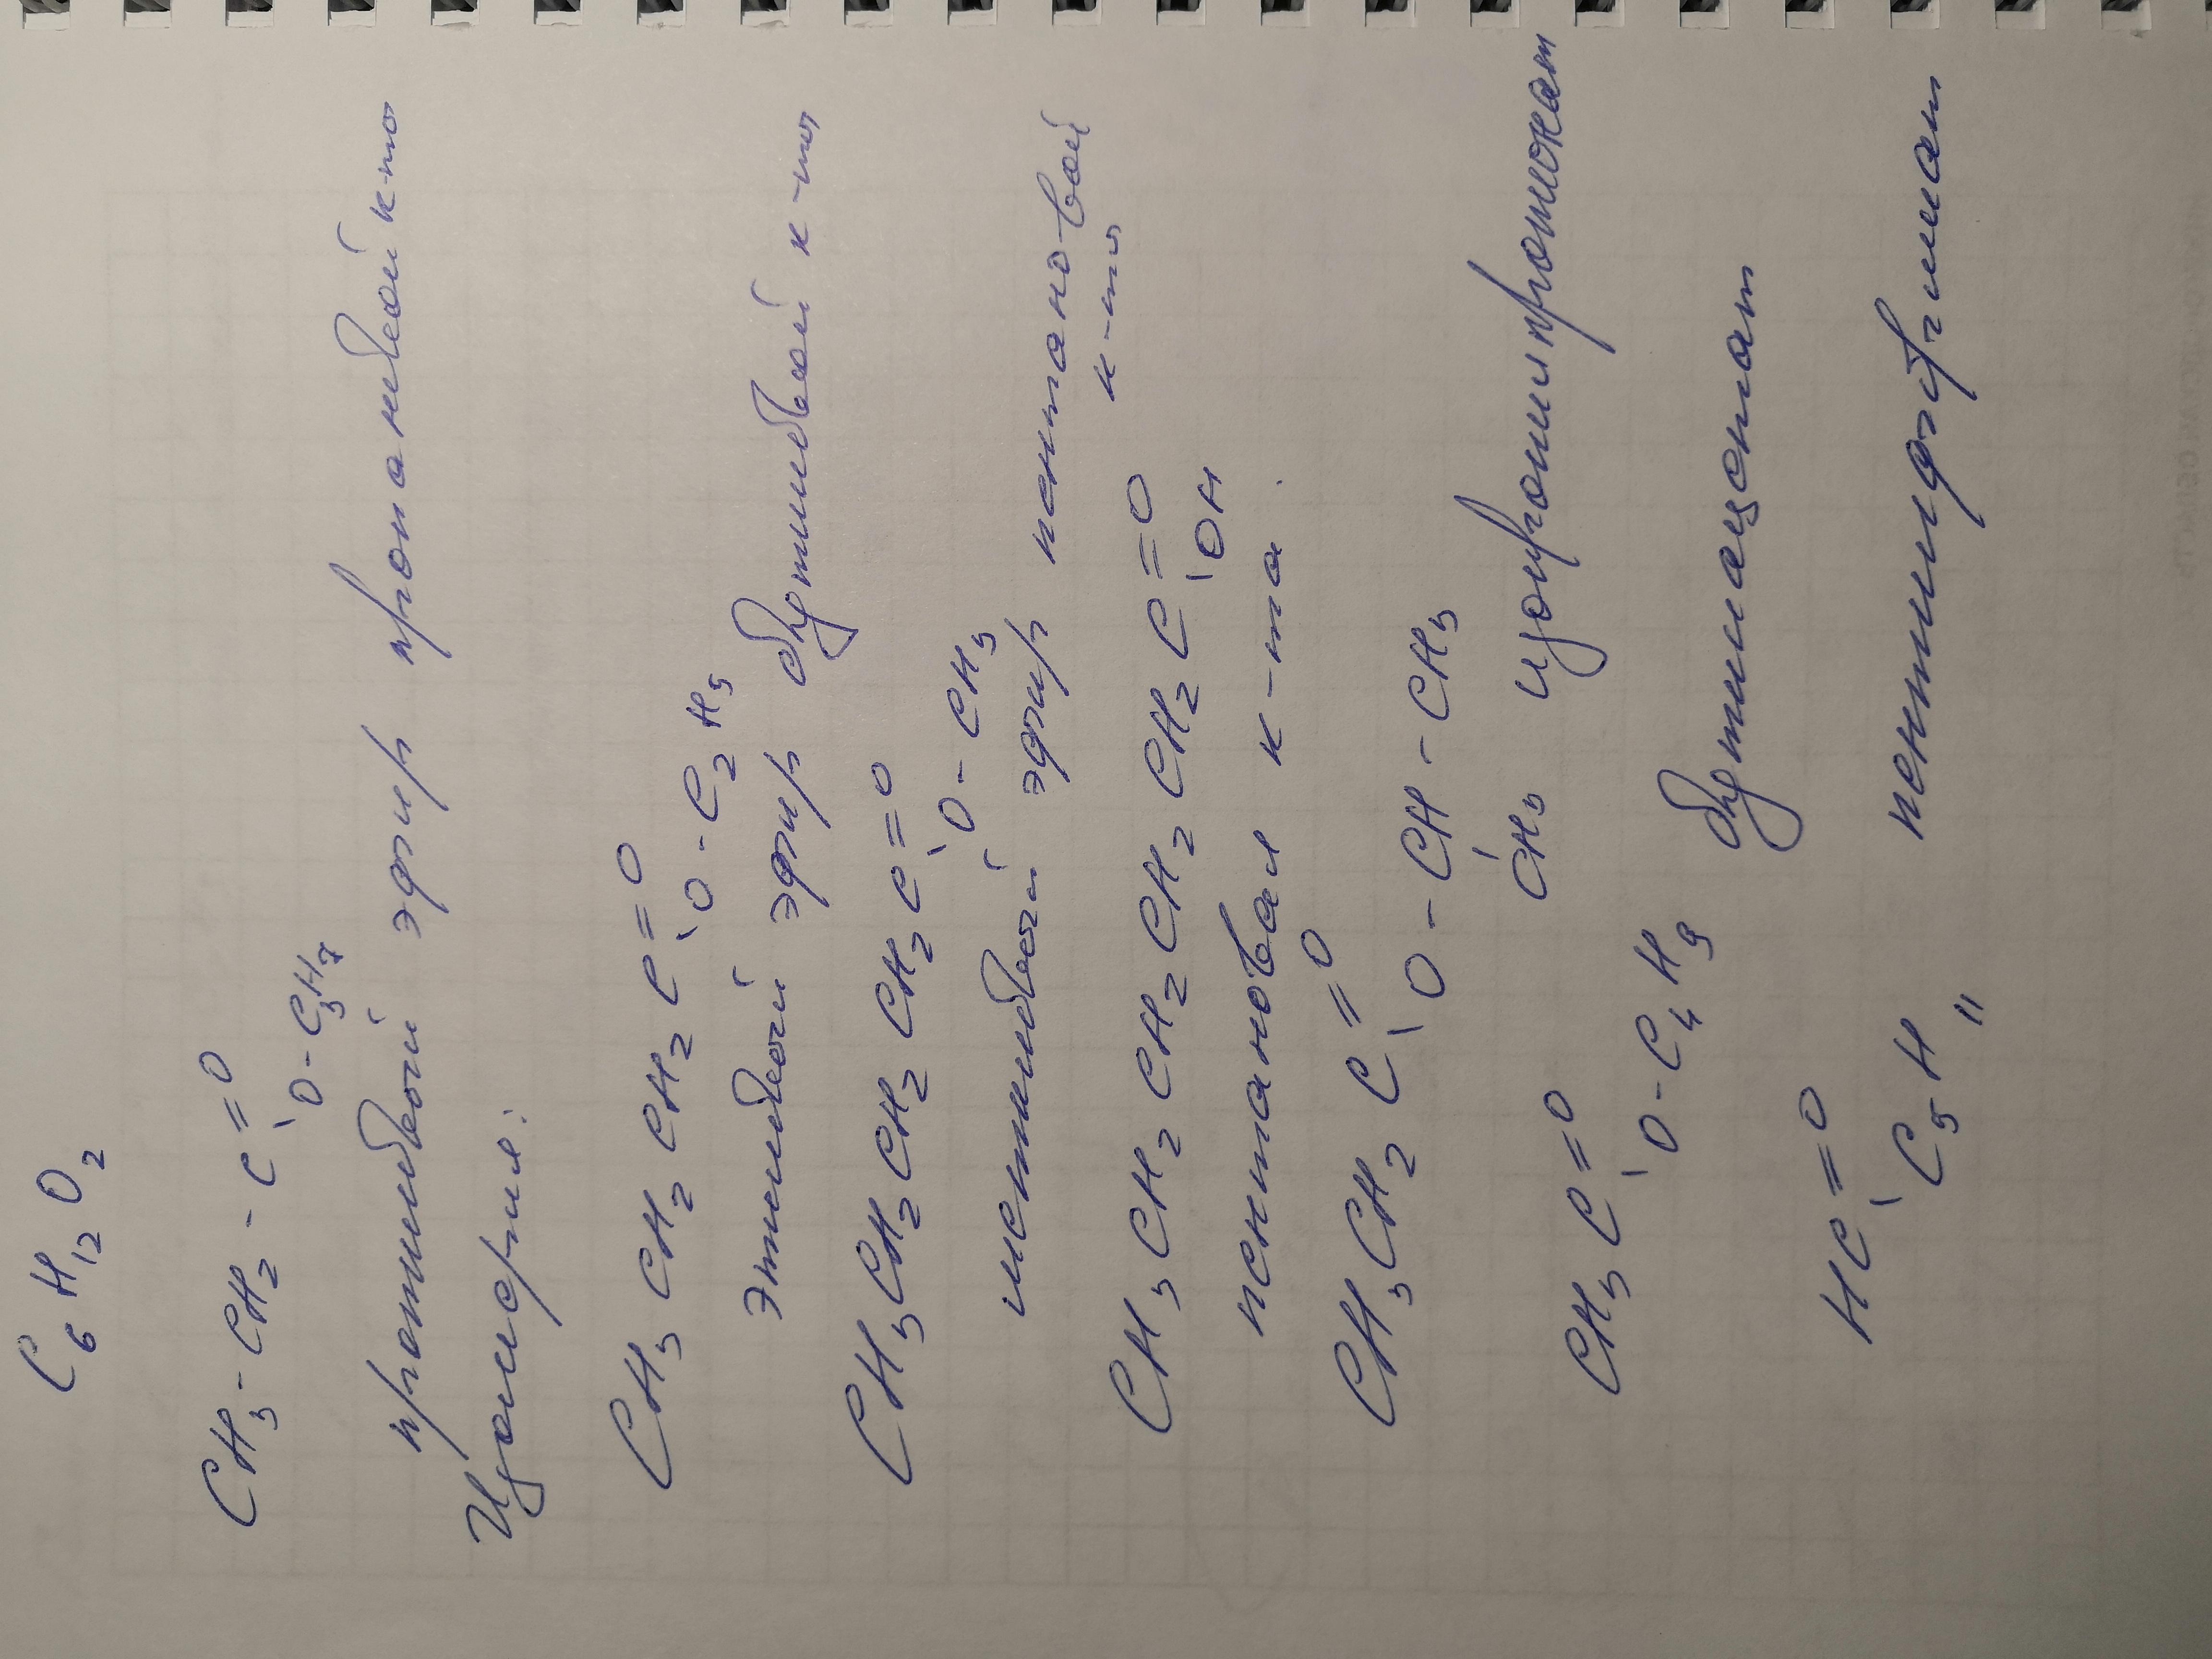 C6H12O2
CH3-CH2-C=O
O-C3H7
пропиловый эфир пропановой к-ты
Изомерия:
CH3CH2CH2C=O
O-C2H5
этиловый эфир бутиловой к-ты
CH3CH2CH2CH2C=O
O-CH3
метиловый эфир пентановой
к-ты
CH3CH2CH2CH2CH2C=O
OH
пентановая к-та.
CH3CH2C=O
O-CH-CH3
CH3 изопропилпропионат
CH3C=O
O-C4H9
бутилацетат
HC=O
C5H11
пентилформиат